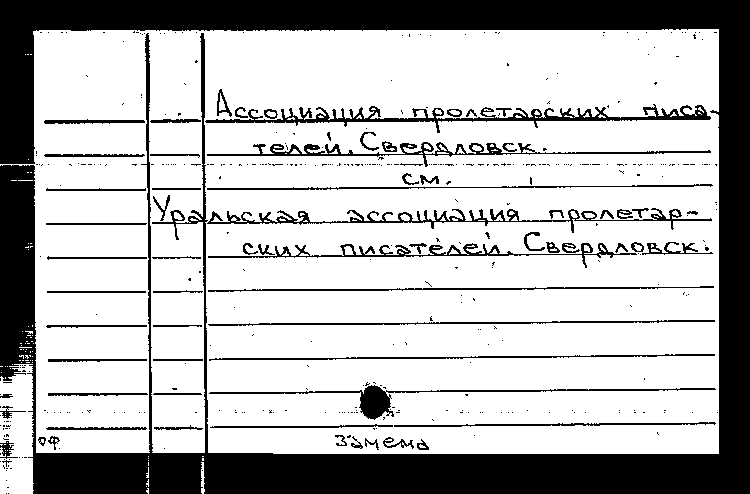 Ассоциация пролетарских писа-
телей. Свердловск.
см.
Уральская ассоциация пролетар-
ских писателей. Свердловск.
ОФ замена